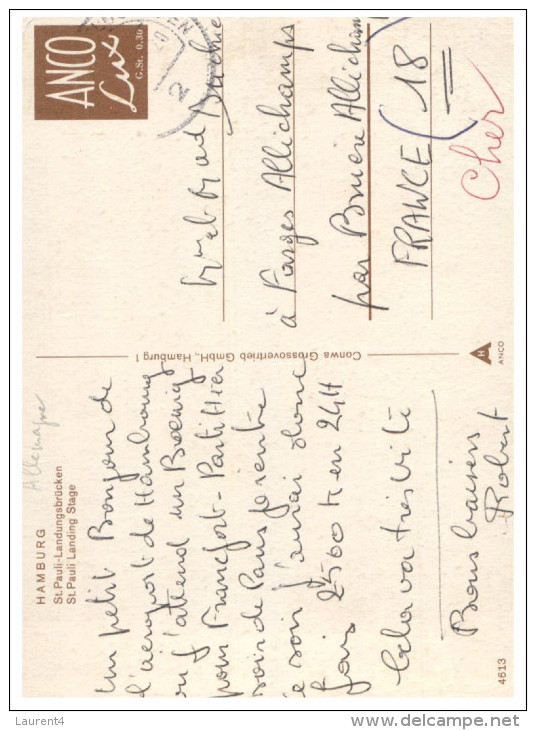 HAMBURG
St. Pauli-Landungsbrücken
St. Pauli Landing Stage
Allemagne
un petit Bonjour de
l'aéroport de Hambourg
où j'attend un Boeing
pour Francfort - Parti Hier
soir de Paris je rentre
ce soir j'aurai donc
fais 2500 K en 24H
Cela va très vite
Bons baisers
Robert
4613
Conwa Grossovertrieb GmbH., Hamburg 1
ANCO
Lux
G.St. 0.30
2
à Farges Allichamps
par Bruère Allicham
FRANCE (18
Cher
H
ANCO
Laurent4
www.delcampe.net